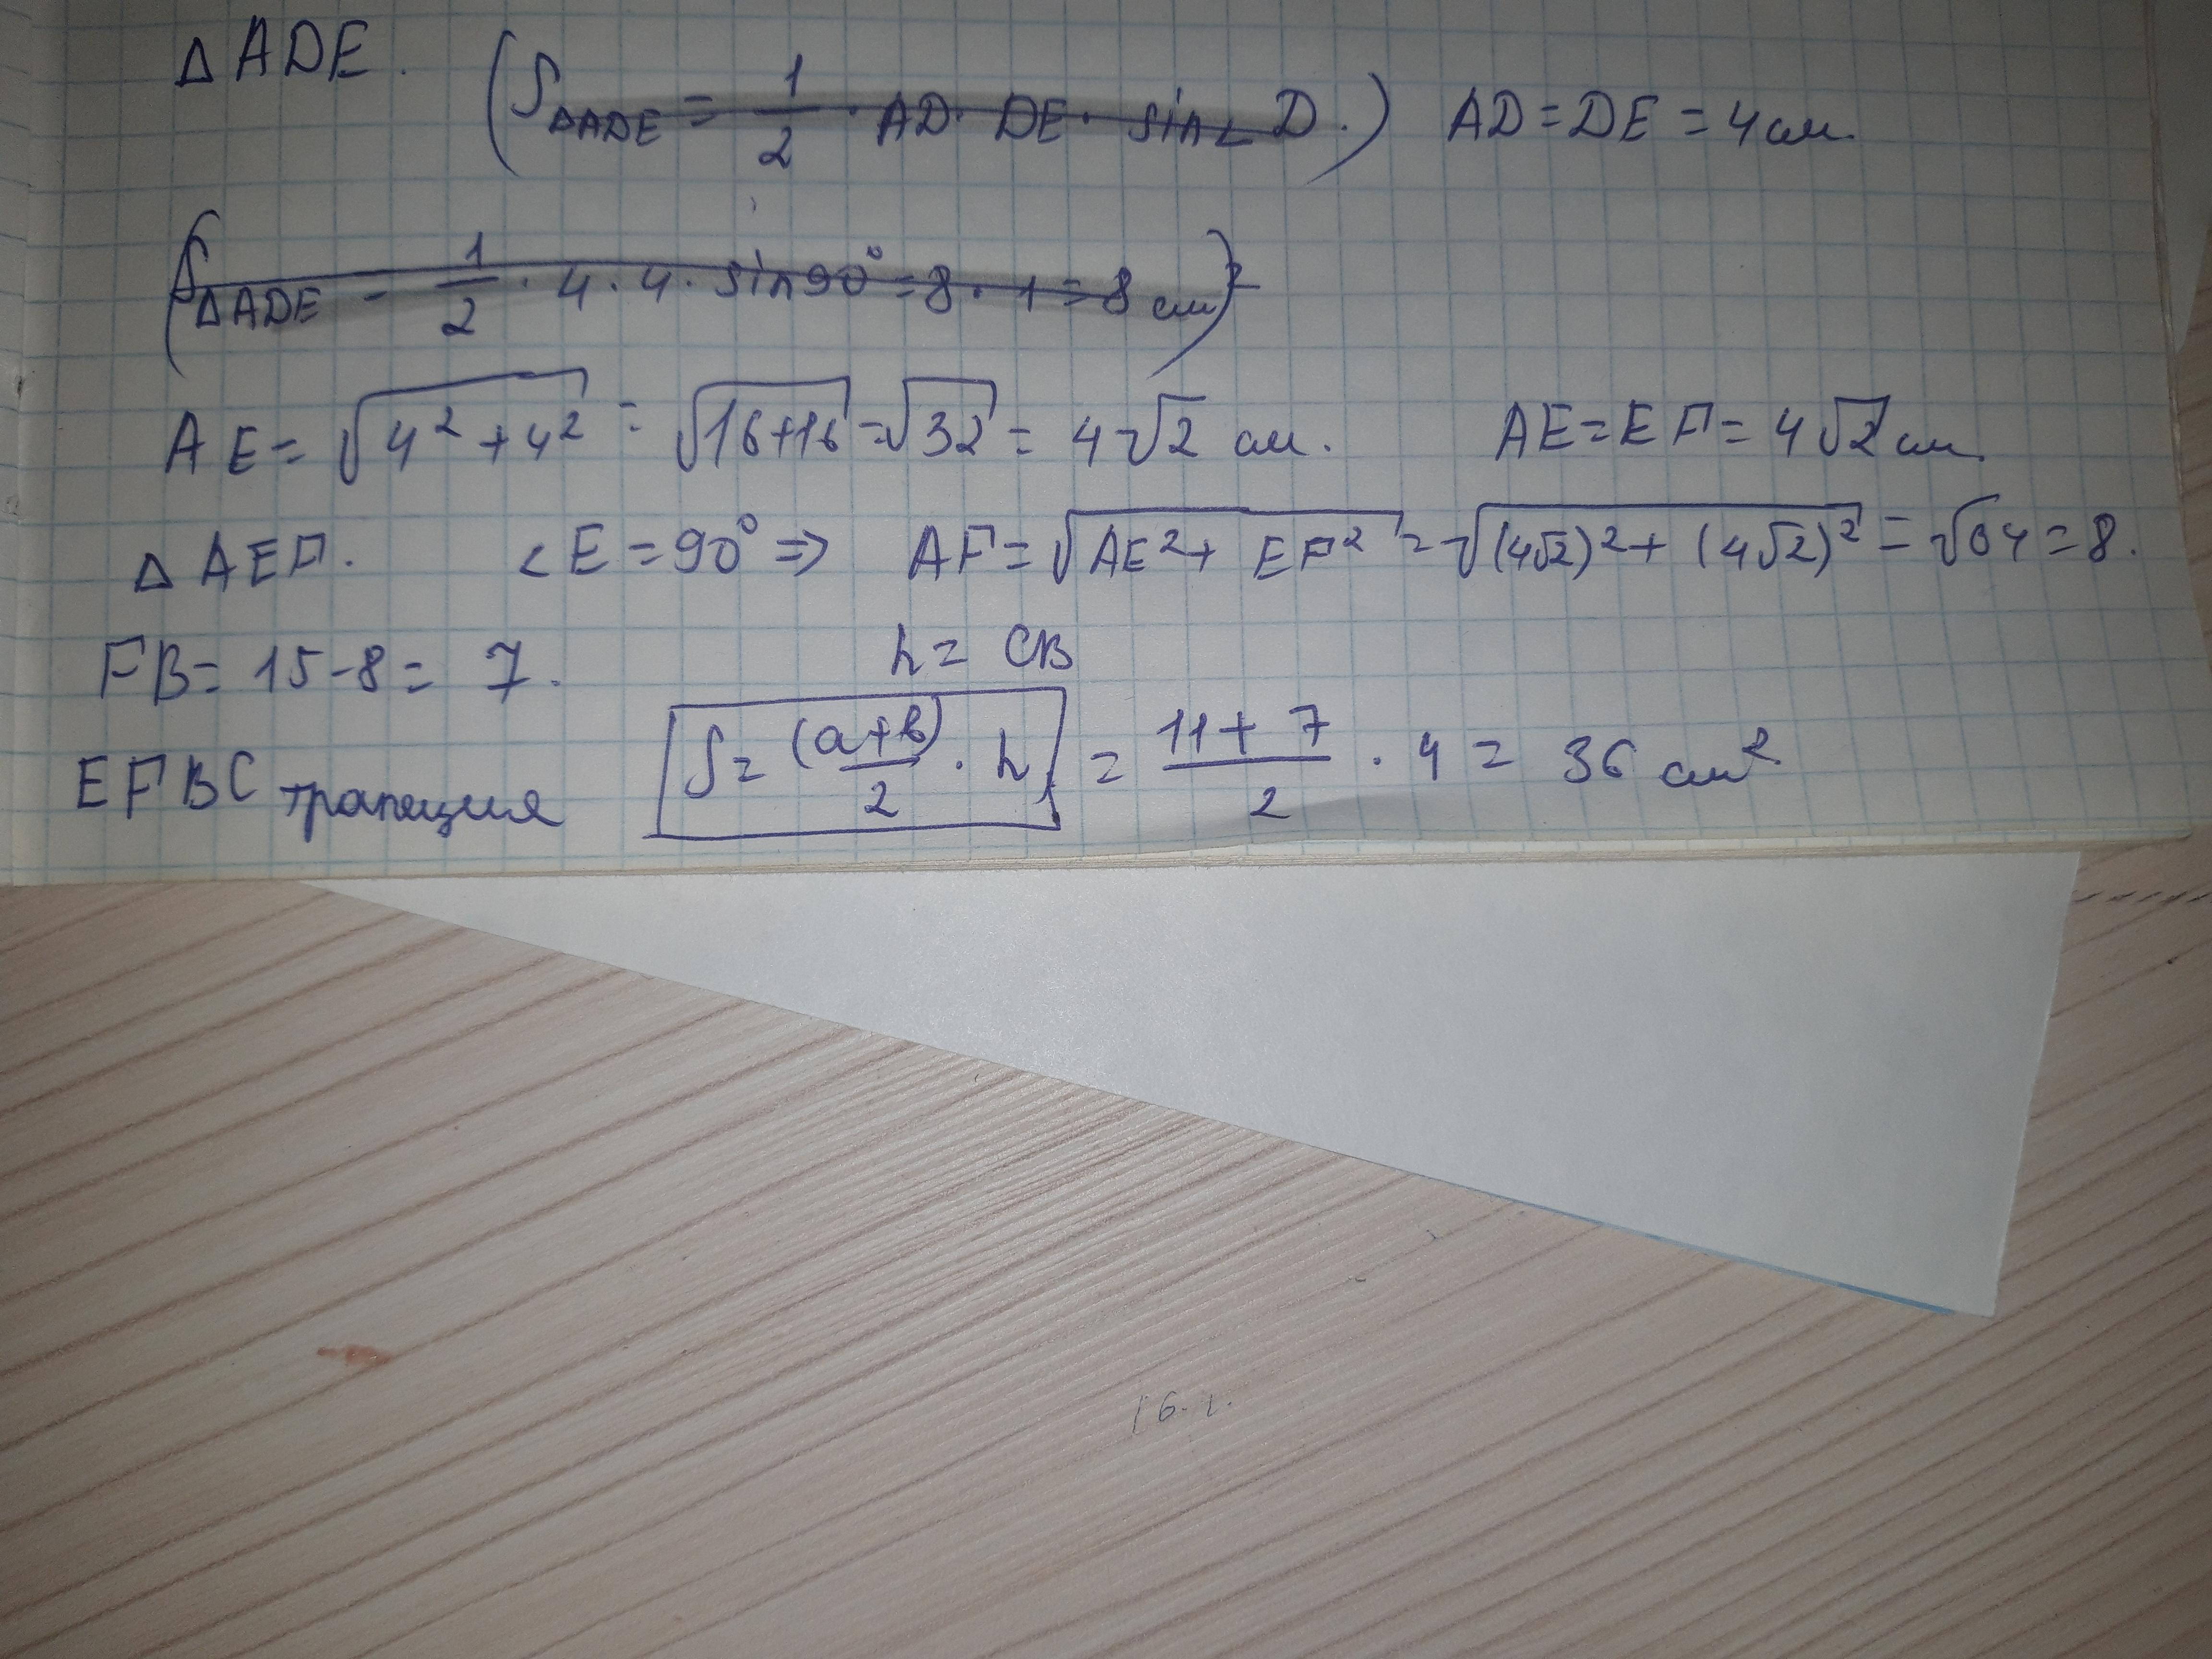 Δ ADE. (S ΔADE = 1/2 · AD · DE · sin ∠ D.) AD = DE = 4 см.
(S ΔADE = 1/2 · 4 · 4 · sin 90° = 8 · 1 = 8 см²)
AE = √(4² + 4²) = √(16+16) = √32 = 4√2 см. AE = EF = 4√2 см.
Δ AEF. <E = 90° ⇒ AF = √(AE² + EF²) = √((4√2)² + (4√2)²) = √64 = 8.
FB = 15 - 8 = 7. h = CB
EFBC трапеция S = (a+b)/2 · h = (11 + 7)/2 · 4 = 36 см²